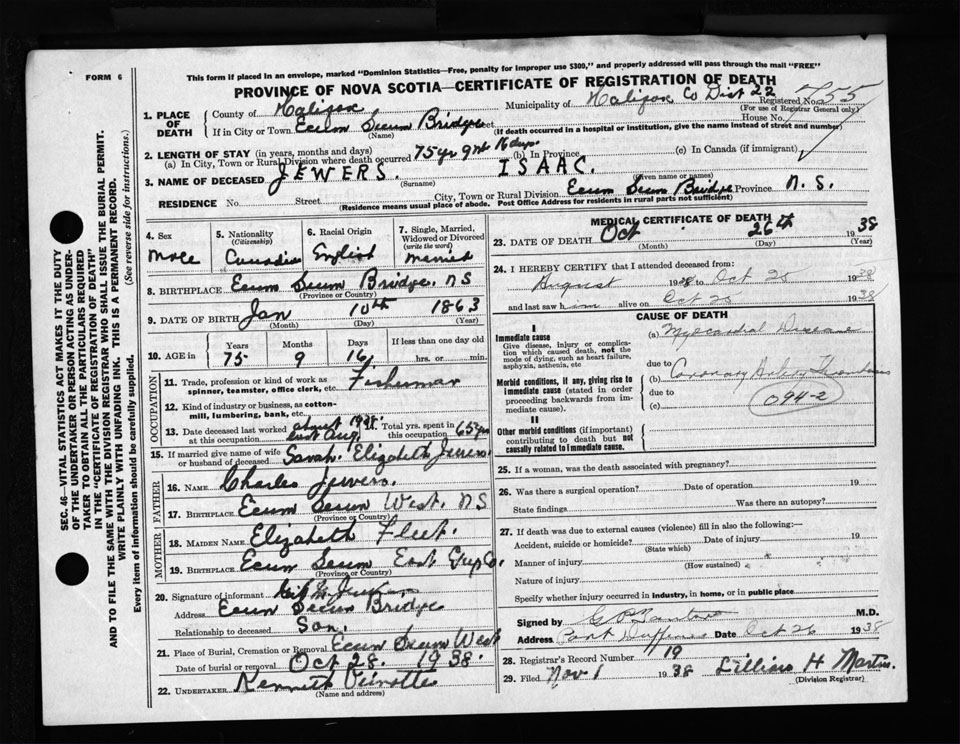 FORM 6
This form if placed in an envelope, marked "Dominion Statistics—Free, penalty for improper use $300," and properly addressed will pass through the mail "FREE"
PROVINCE OF NOVA SCOTIA—CERTIFICATE OF REGISTRATION OF DEATH
SEC. 46—VITAL STATISTICS ACT MAKES IT THE DUTY
OF THE UNDERTAKER OR PERSON ACTING AS UNDER-
TAKER TO OBTAIN ALL THE PARTICULARS REQUIRED
IN THE "CERTIFICATE OF REGISTRATION OF DEATH"
AND TO FILE THE SAME WITH THE DIVISION REGISTRAR WHO SHALL ISSUE THE BURIAL PERMIT.
WRITE PLAINLY WITH UNFADING INK. THIS IS A PERMANENT RECORD.
Every item of information should be carefully supplied. (See reverse side for instructions.)
1. PLACE OF DEATH
County of Halifax Municipality of Halifax Co Dist 22 Registered No. 755
(For use of Registrar General only)
If in City or Town Ecum Secum Bridge Street House No.
(Name) (If death occurred in a hospital or institution, give the name instead of street and number)
2. LENGTH OF STAY (in years, months and days)
(a) In City, Town or Rural Division where death occurred 75 yr 9 mt 16 days (b) In Province (c) In Canada (if immigrant)
3. NAME OF DECEASED JEWERS. ISAAC.
(Surname) (Given name or names)
RESIDENCE No. Street City, Town or Rural Division Ecum Secum Bridge Province N.S.
(Residence means usual place of abode. Post Office Address for residents in rural parts not sufficient)
4. Sex 5. Nationality (Citizenship) 6. Racial Origin 7. Single, Married, Widowed or Divorced (write the word)
Male Canadian English Married
8. BIRTHPLACE Ecum Secum Bridge. NS
(Province or Country)
9. DATE OF BIRTH Jan 10th 1863
(Month) (Day) (Year)
10. AGE in Years Months Days If less than one day old
75 9 16 hrs. or min.
OCCUPATION
11. Trade, profession or kind of work as spinner, teamster, office clerk, etc. Fisherman
12. Kind of industry or business, as cotton-mill, lumbering, bank, etc.
13. Date deceased last worked at this occupation about Aug. Total yrs. spent in this occupation 65 yrs
15. If married give name of wife or husband of deceased Sarah Elizabeth Jewers
FATHER
16. NAME Charles Jewers.
17. BIRTHPLACE Ecum Secum West. NS
(Province or Country)
MOTHER
18. MAIDEN NAME Elizabeth Fleet.
19. BIRTHPLACE Ecum Secum East Guy Co.
(Province or Country)
20. Signature of informant
Address Ecum Secum Bridge
Relationship to deceased Son.
21. Place of Burial, Cremation or Removal Ecum Secum West
Date of burial or removal Oct 28. 1938.
22. UNDERTAKER Kenneth
(Name and address)
MEDICAL CERTIFICATE OF DEATH
23. DATE OF DEATH Oct 26th 1938
(Month) (Day) (Year)
24. I HEREBY CERTIFY that I attended deceased from:
August 1938 to Oct 25 1938
and last saw h im alive on Oct 25 1938
CAUSE OF DEATH
I
Immediate cause
Give disease, injury or complication which caused death, not the mode of dying, such as heart failure, asphyxia, asthenia, etc
(a) Myocardial Disease
due to
Morbid conditions, if any, giving rise to immediate cause (stated in order proceeding backwards from immediate cause).
(b) Coronary Artery Thrombosis
due to
(c) 094-2
II
Other morbid conditions (if important) contributing to death but not causally related to immediate cause.
25. If a woman, was the death associated with pregnancy?
26. Was there a surgical operation? Date of operation 19
State findings Was there an autopsy?
27. If death was due to external causes (violence) fill in also the following:—
Accident, suicide or homicide? Date of injury 19
(State which)
Manner of injury
(How sustained)
Nature of injury
Specify whether injury occurred in industry, in home, or in public place
Signed by M.D.
Address Port Dufferin Date Oct 26 1938
28. Registrar's Record Number 19
29. Filed Nov 1 1938 Lillian H Martin.
(Division Registrar)